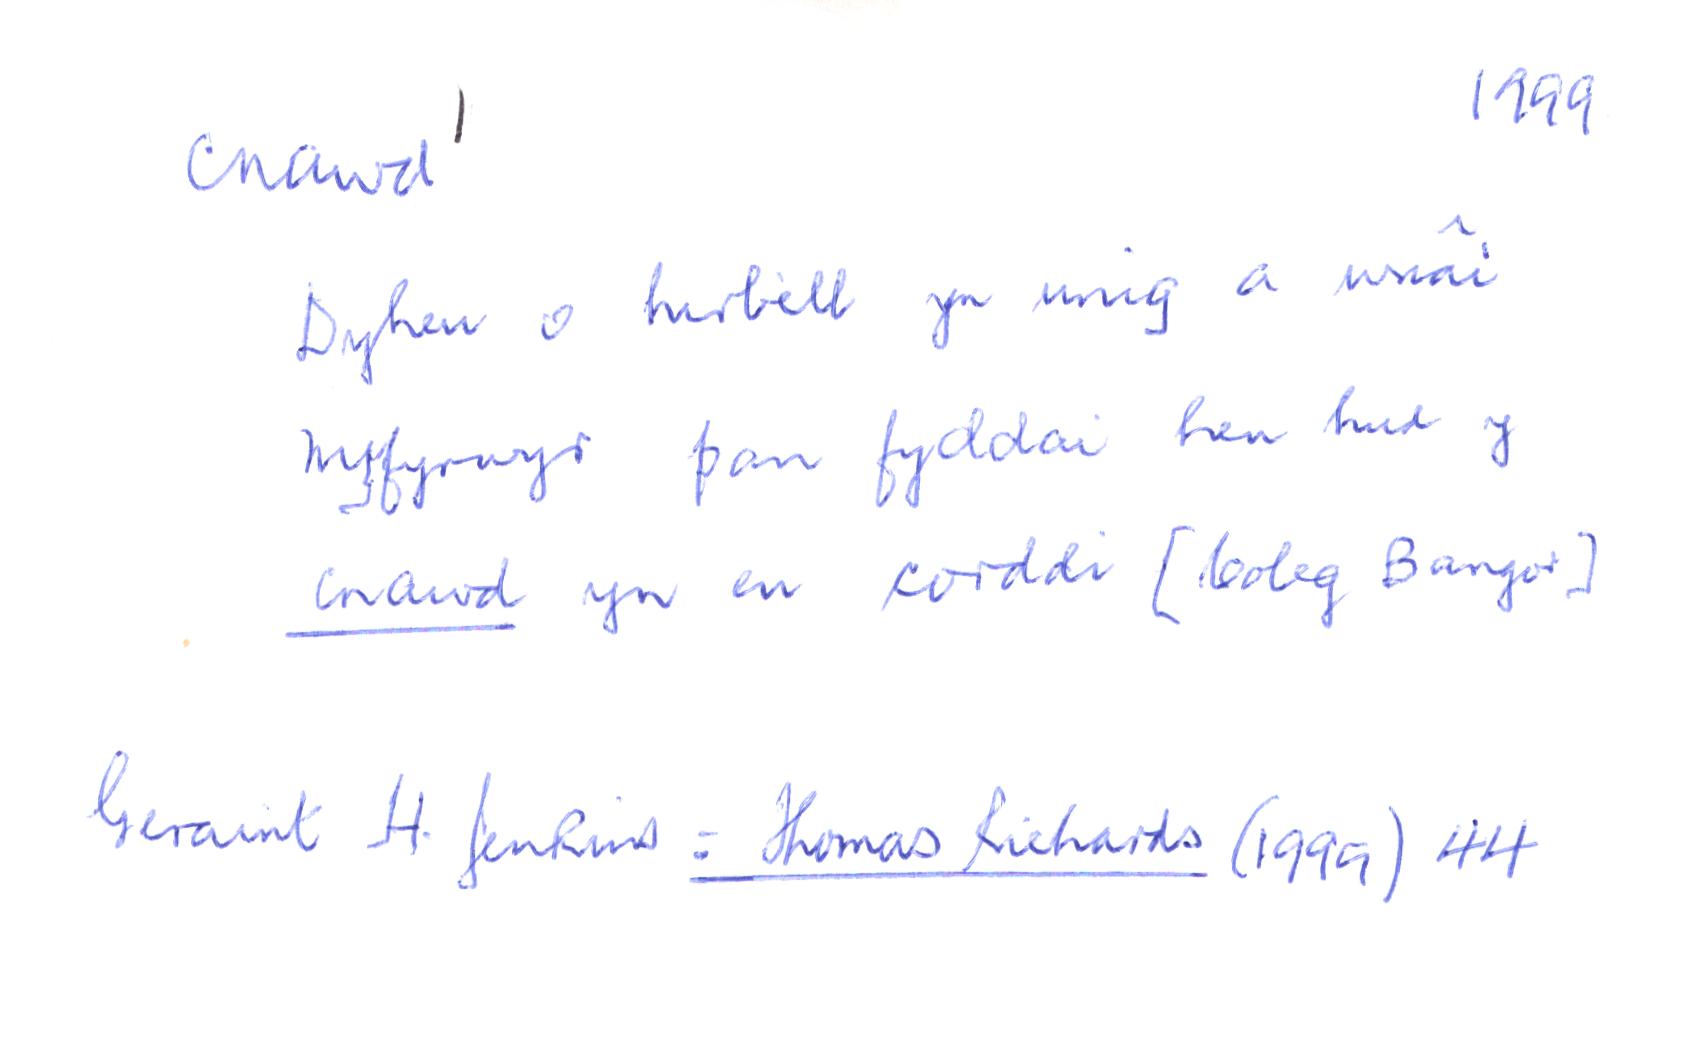 cnawd¹ 1999
Dyheu o hirbell yn unig a wnâi
myfyrwyr pan fyddai hen hud y
cnawd yn eu corddi [Coleg Bangor]
Geraint H. Jenkins : Thomas Richards (1999) 44